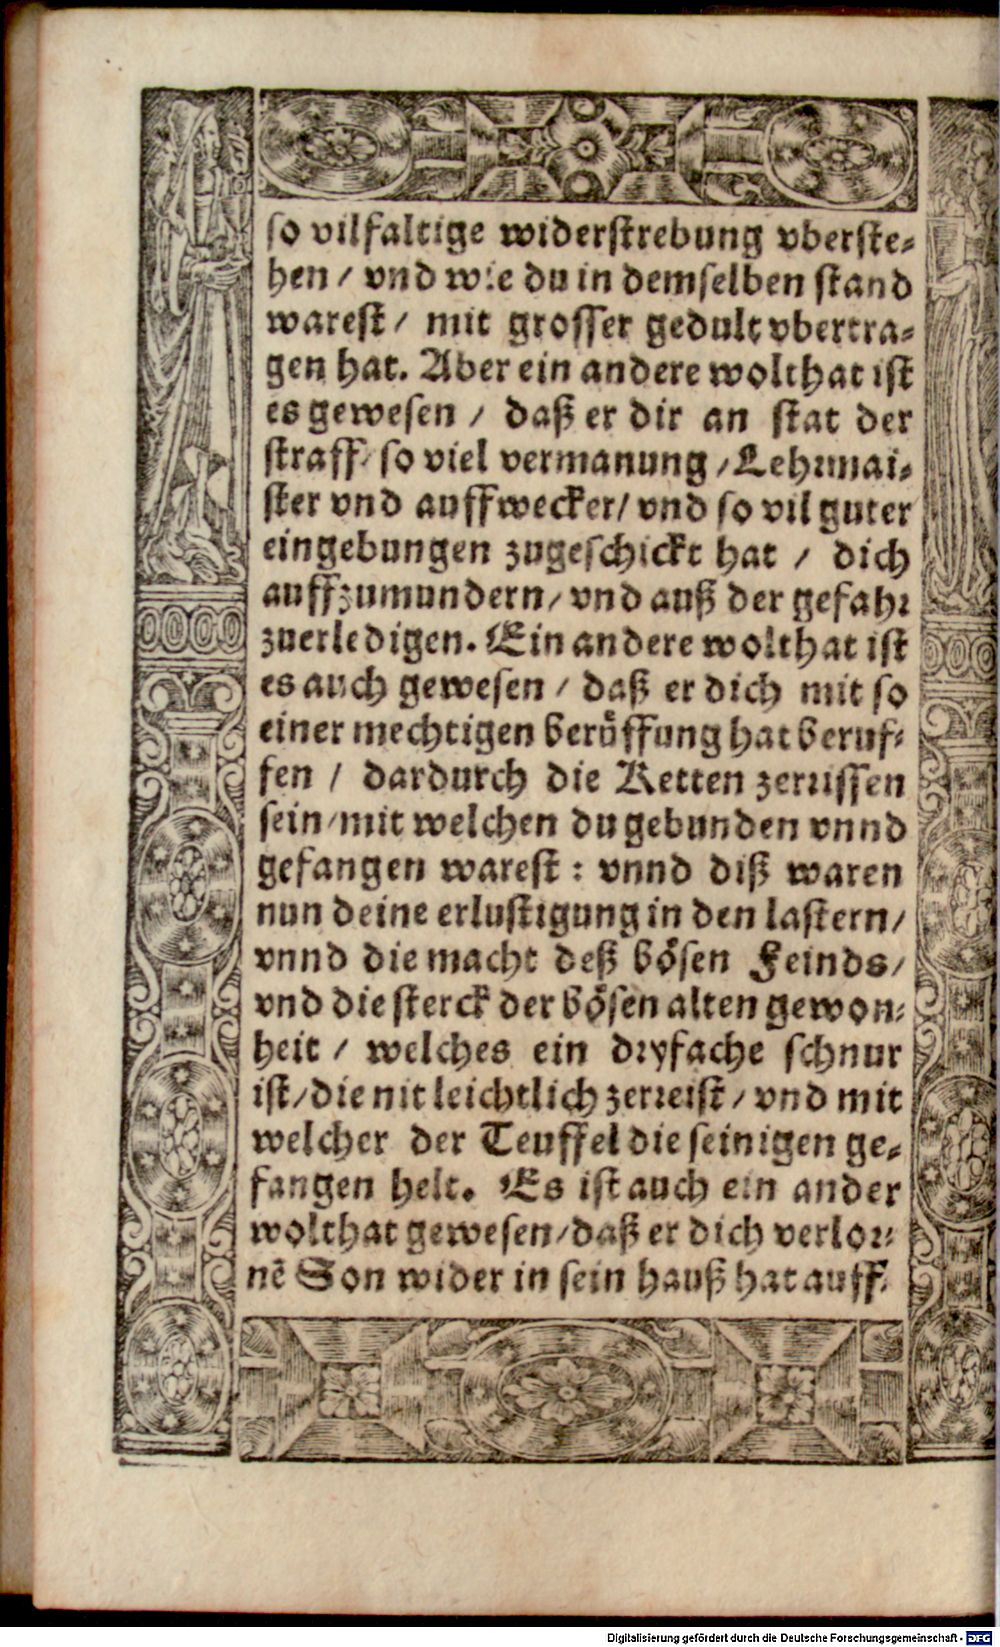 so vilfaltige widerstrebung vberste-
hen / vnd wie du in demselben stand
warest / mit grosser gedult vbertra-
gen hat. Aber ein andere wolthat ist
es gewesen / daß er dir an stat der
straff / so viel vermanung / Lehrmai-
ster vnd auffwecker / vnd so vil guter
eingebungen zugeschickt hat / dich
auffzumundern / vnd auß der gefahr
zuerledigen. Ein andere wolthat ist
es auch gewesen / daß er dich mit so
einer mechtigen berůffung hat beruf-
fen / dardurch die Ketten zerrissen
sein / mit welchen du gebunden vnnd
gefangen warest : vnnd diß waren
nun deine erlustigung in den lastern /
vnnd die macht deß bösen Feinds /
vnd die sterck der bösen alten gewon-
heit / welches ein dryfache schnur
ist / die nit leichtlich zerreist / vnd mit
welcher der Teuffel die seinigen ge-
fangen helt. Es ist auch ein ander
wolthat gewesen / daß er dich verlor-
nẽ Son wider in sein hauß hat auff-
Digitalisierung gefördert durch die Deutsche Forschungsgemeinschaft - DFG